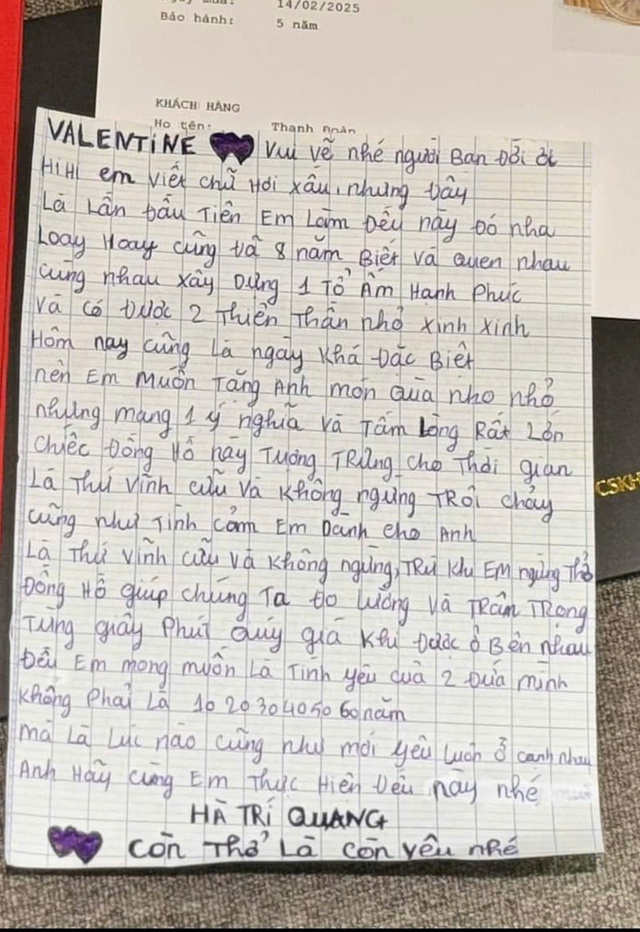 14/02/2025
Bảo hành: 5 năm
KHÁCH HÀNG
Họ tên: Thanh Đoàn
VALENTINE Vui vẽ nhé người Bạn Đời ơi
HiHi em viết chữ Hơi xấu, nhưng Đây
Là Lần Đầu Tiên Em Làm Đều này Đó nha
Loay Hoay cũng Đã 8 năm Biết và quen nhau
cùng nhau xây Dựng 1 Tổ Ấm Hạnh Phúc
Và có Được 2 Thiên Thần nhỏ xinh xinh
Hôm nay cũng Là ngày Khá Đặc Biệt
nên Em Muốn Tặng Anh món quà nho nhỏ
nhưng mang 1 ý nghĩa Và Tấm Lòng Rất Lớn
Chiếc Đồng Hồ này Tượng Trưng cho Thời gian
Là Thứ Vĩnh cữu và Không ngừng TRôi chảy
cũng như Tình cảm Em Dành cho Anh
Là Thứ Vĩnh cữu Và Không ngừng, TRừ Khi Em ngừng Thở
Đồng Hồ giúp chúng Ta Đo Lường Và Trân Trọng
Từng giây Phút Quý giá Khi Được ở Bên nhau
Đều Em mong muốn Là Tình yêu của 2 Đứa mình
Không Phải Là 10 20 30 40 50 60 năm
mà Là Lúc nào cũng như mới yêu Luôn ở cạnh nhau
Anh Hãy cùng Em Thực Hiện Đều này nhé
HÀ TRÍ QUANG
Còn Thở Là Còn yêu nhé
CSKH